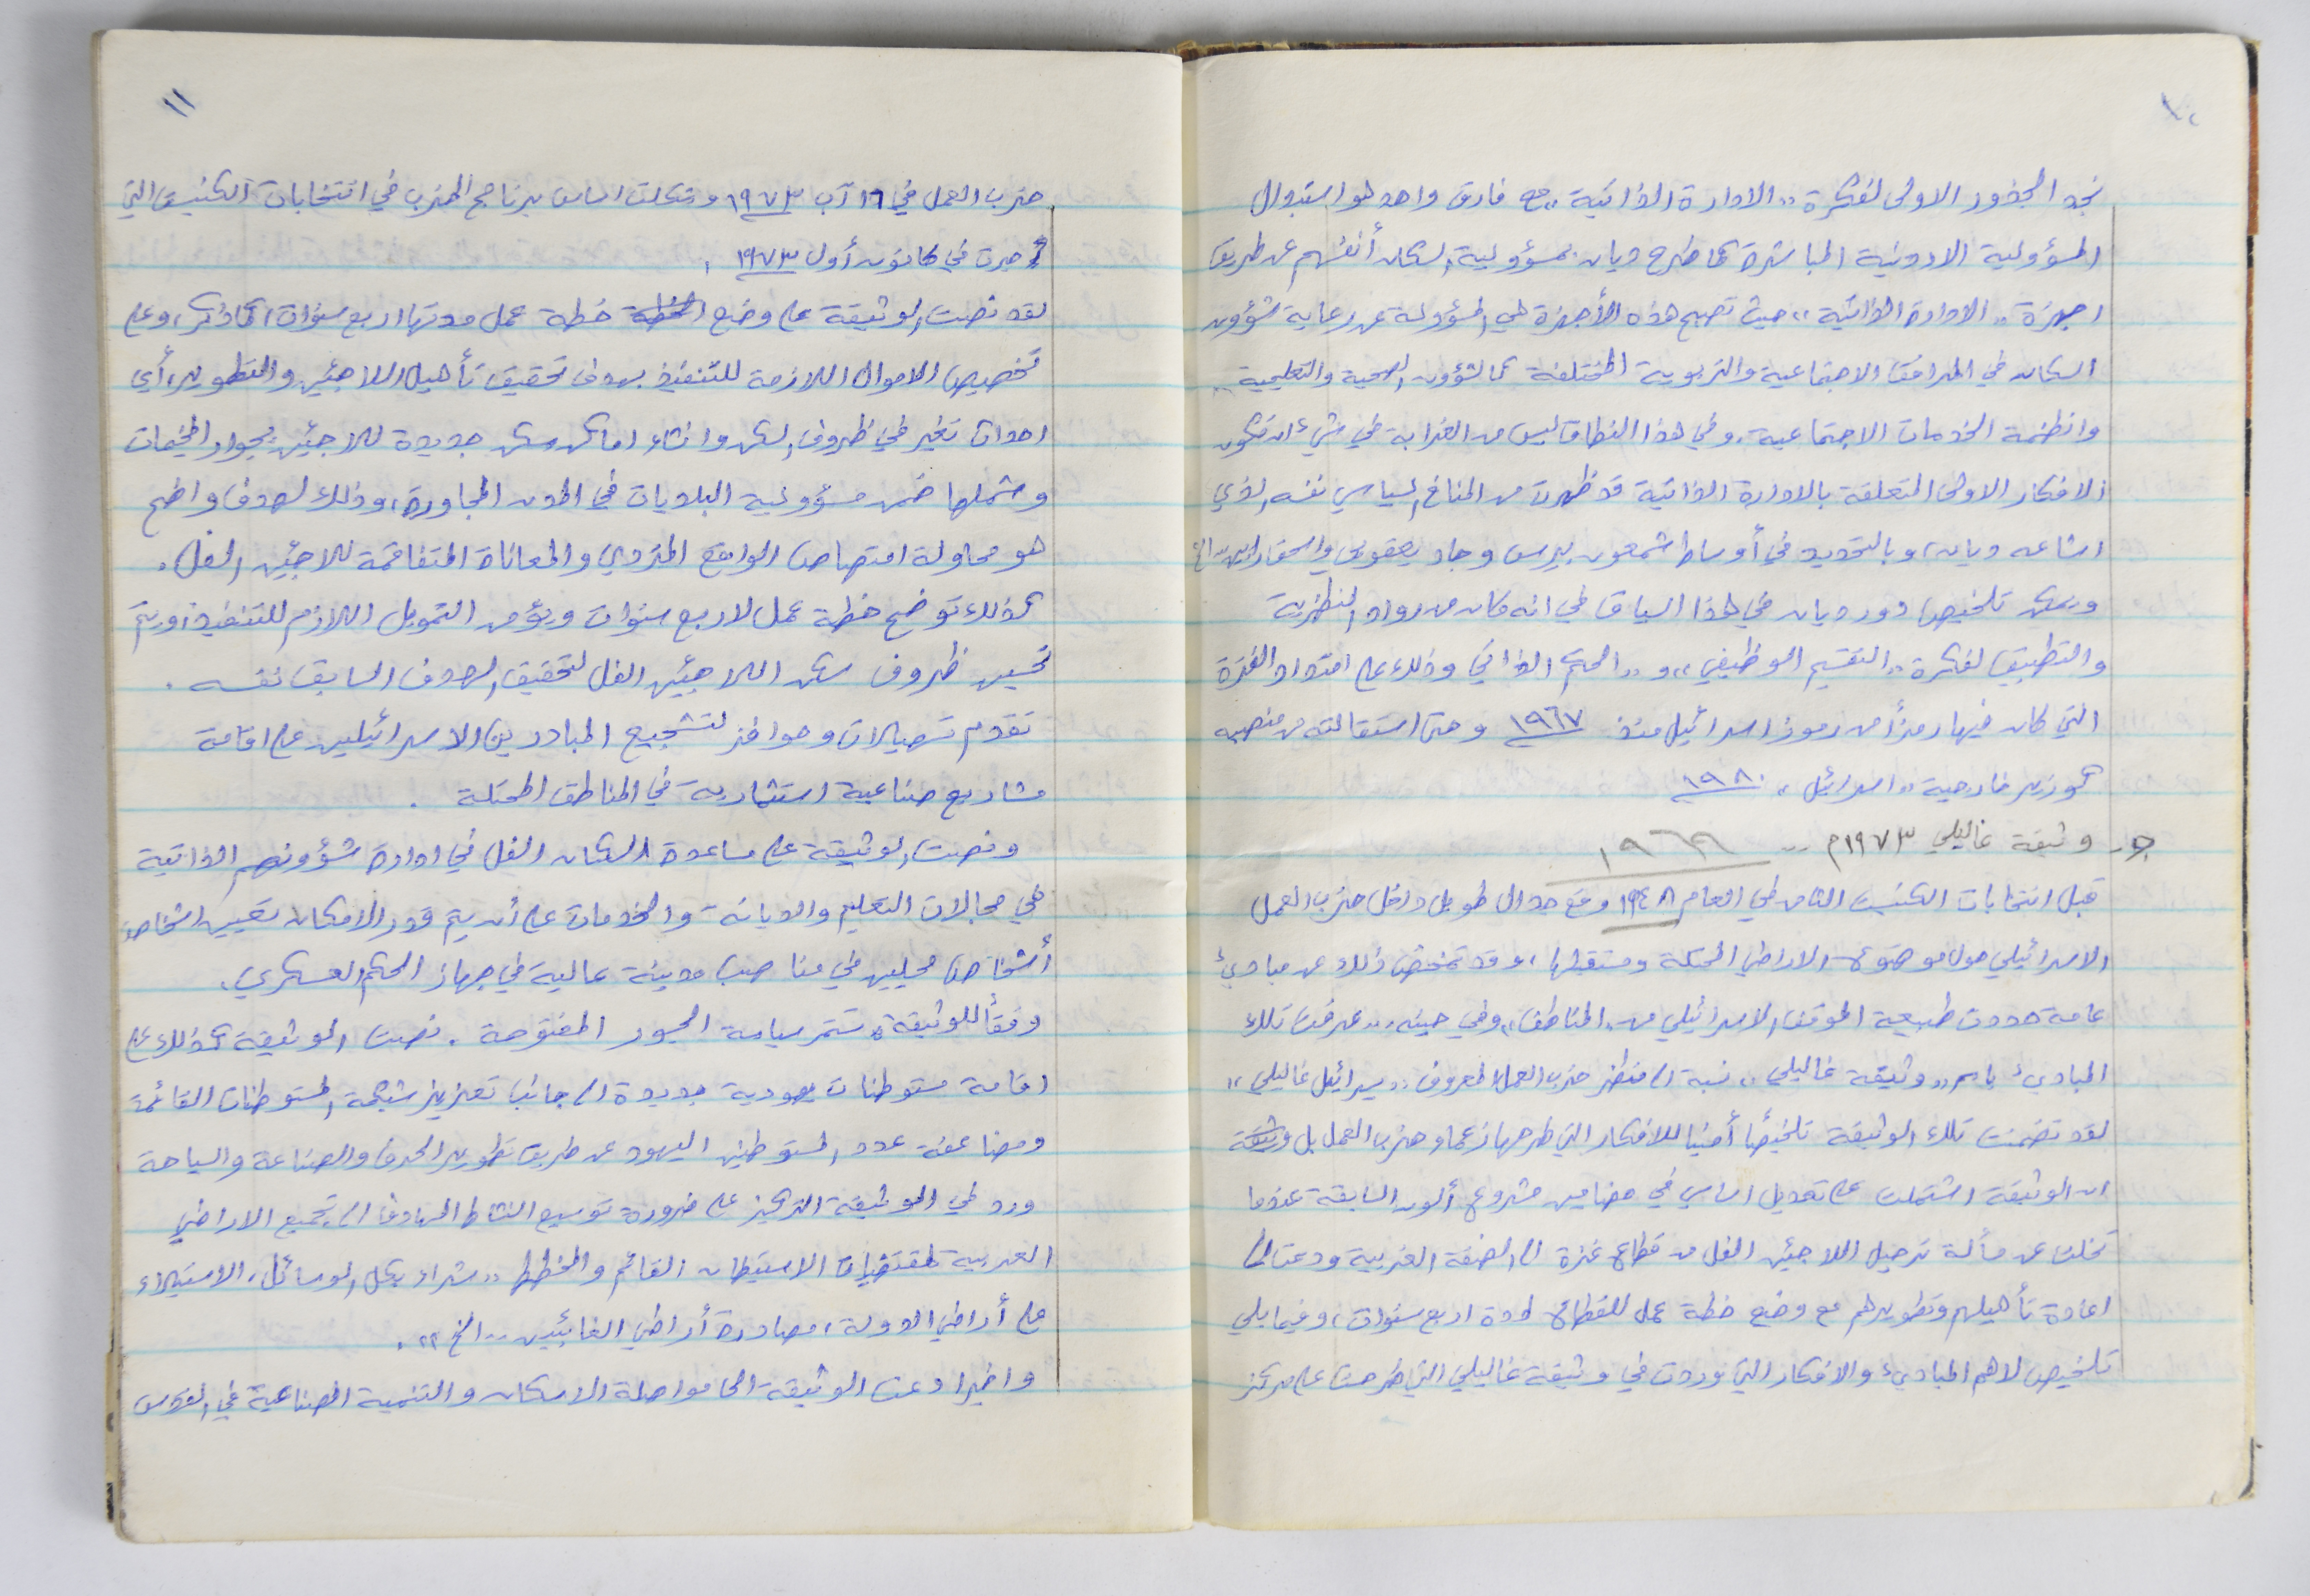 ١٠
نجد الجذور الاولى لفكرة ،، الادارة الذاتية ،، مع فارق واحد هو استبدال
المسؤولية الاردنية المباشرة كما طرح ديان بمسؤولية السكان أنفسهم عن طريق
اجهزة ،، الادارة الذاتية ،، حيث تصبح هذه الأجهزة هي المسؤولة عن رعاية شؤون
السكان في المرافق الاجتماعية والتربوية المختلفة كالشؤون الصحية والتعليمية
وانظمة الخدمات الاجتماعية. وفي هذا النطاق ليس من الغرابة في شيء ان تكون
الافكار الاولى المتعلقة بالادارة الذاتية قد ظهرت من المناخ السياسي نفسه الذي
اشاعه ديان، وبالتحديد في أوساط شمعون بيرس وجاد يعقوبي واسحق رابين ... الخ
ويمكن تلخيص دور ديان في هذا السياق في انه كان من رواد النظرية
والتطبيق لفكرة ،، التقسيم الوظيفي ،، و ،، الحكم الذاتي وذلك على امتداد الفترة
التي كان فيها رمزاً من رموز اسرائيل منذ ١٩٦٧ وحتى استقالته من منصبه
كوزير خارجية ،، اسرائيل ،، ١٩٨٠
جـ- وثيقة غاليلي ١٩٧٣م .. ١٩٦٩
قبل انتخابات الكنيست الثامن في العام ١٩٤٨ وقع جدال طويل داخل حزب العمل
الاسرائيلي حول موضوع الاراضي المحتلة ومستقبلها، وقد تمخض ذلك عن مبادئ
عامة حددت طبيعة الموقف الاسرائيلي من ،، المناطق ،، وفي حينه ،، عرفت تلك
المبادئ باسم ،، وثيقة غاليلي ،، نسبة الى منظر حزب العمل المعروف ،، يسرائيل غاليلي ،،
لقد تضمنت تلك الوثيقة تلخيصاً أمنيا للافكار التي طرحها زعماء حزب العمل بل
ان الوثيقة اشتملت على تعديل اساسي في مضامين مشروع ألون السابقة عندما
تخلت عن مسألة ترحيل اللاجئين الفل من قطاع غزة الى الضفة الغربية ودعت الى
اعادة تأهيلهم وتطويرهم مع وضع خطة عمل للقطاع لمدة اربع سنوات، وفيما يلي
تلخيص لاهم المبادئ والافكار التي وردت في وثيقة غاليلي التي طرحت على مركز
١١
حزب العمل في ١٦ آب ١٩٧٣ وشكلت اساس برنامج الحزب في انتخابات الكنيست التي
جرت في كانون أول ١٩٧٣.
لقد نصت الوثيقة على وضع خطة عمل مدتها اربع سنوات، كما ذكر، وعلى
تخصيص الاموال اللازمة للتنفيذ بهدف تحقيق تأهيل اللاجئين والتطوير، أي
احداث تغيير في ظروف السكن وانشاء اماكن سكن جديدة للاجئين بجوار المخيمات
وشملها ضمن مسؤولية البلديات في المدن المجاورة، وذلك لهدف واضح
هو محاولة امتصاص الواقع المتردي والمعاناة المتفاقمة للاجئين الفل.
كذلك توضع خطة عمل لاربع سنوات ويؤمن التمويل اللازم للتنفيذ، ويتم
تحسين ظروف سكن اللاجئين الفل لتحقيق الهدف السابق نفسه.
تقدم تسهيلات وحوافز لتشجيع المبادرين الاسرائيليين على اقامة
مشاريع صناعية استثمارية في المناطق المحتلة.
ونصت الوثيقة على مساعدة السكان الفل في ادارة شؤونهم الذاتية
في مجالات التعليم والديانة والخدمات على أن يتم قدر الامكان تعيين اشخاص
أشخاص محليين في مناصب مدينة عالية في جهاز الحكم العسكري.
وفقاً للوثيقة، تستمر سياسة الجسور المفتوحة. نصت الوثيقة كذلك على
اقامة مستوطنات يهودية جديدة الى جانب تعزيز شبكة المستوطنات القائمة
ومضاعفة عدد المستوطنين اليهود عن طريق تطوير الحرف والصناعة والسياحة
ورد في الوثيقة التركيز على ضرورة توسيع النشاط الهادف الى تجميع الاراضي
العربية لمقتضيات الاستيطان القائم والمخطط ،، شراء بكل الوسائل، الاستيلاء
على أراضي الدولة، مصادرة أراضي الغائبين ... الخ ،،.
واخيرا دعت الوثيقة الى مواصلة الاسكان والتنمية الصناعية في القدس